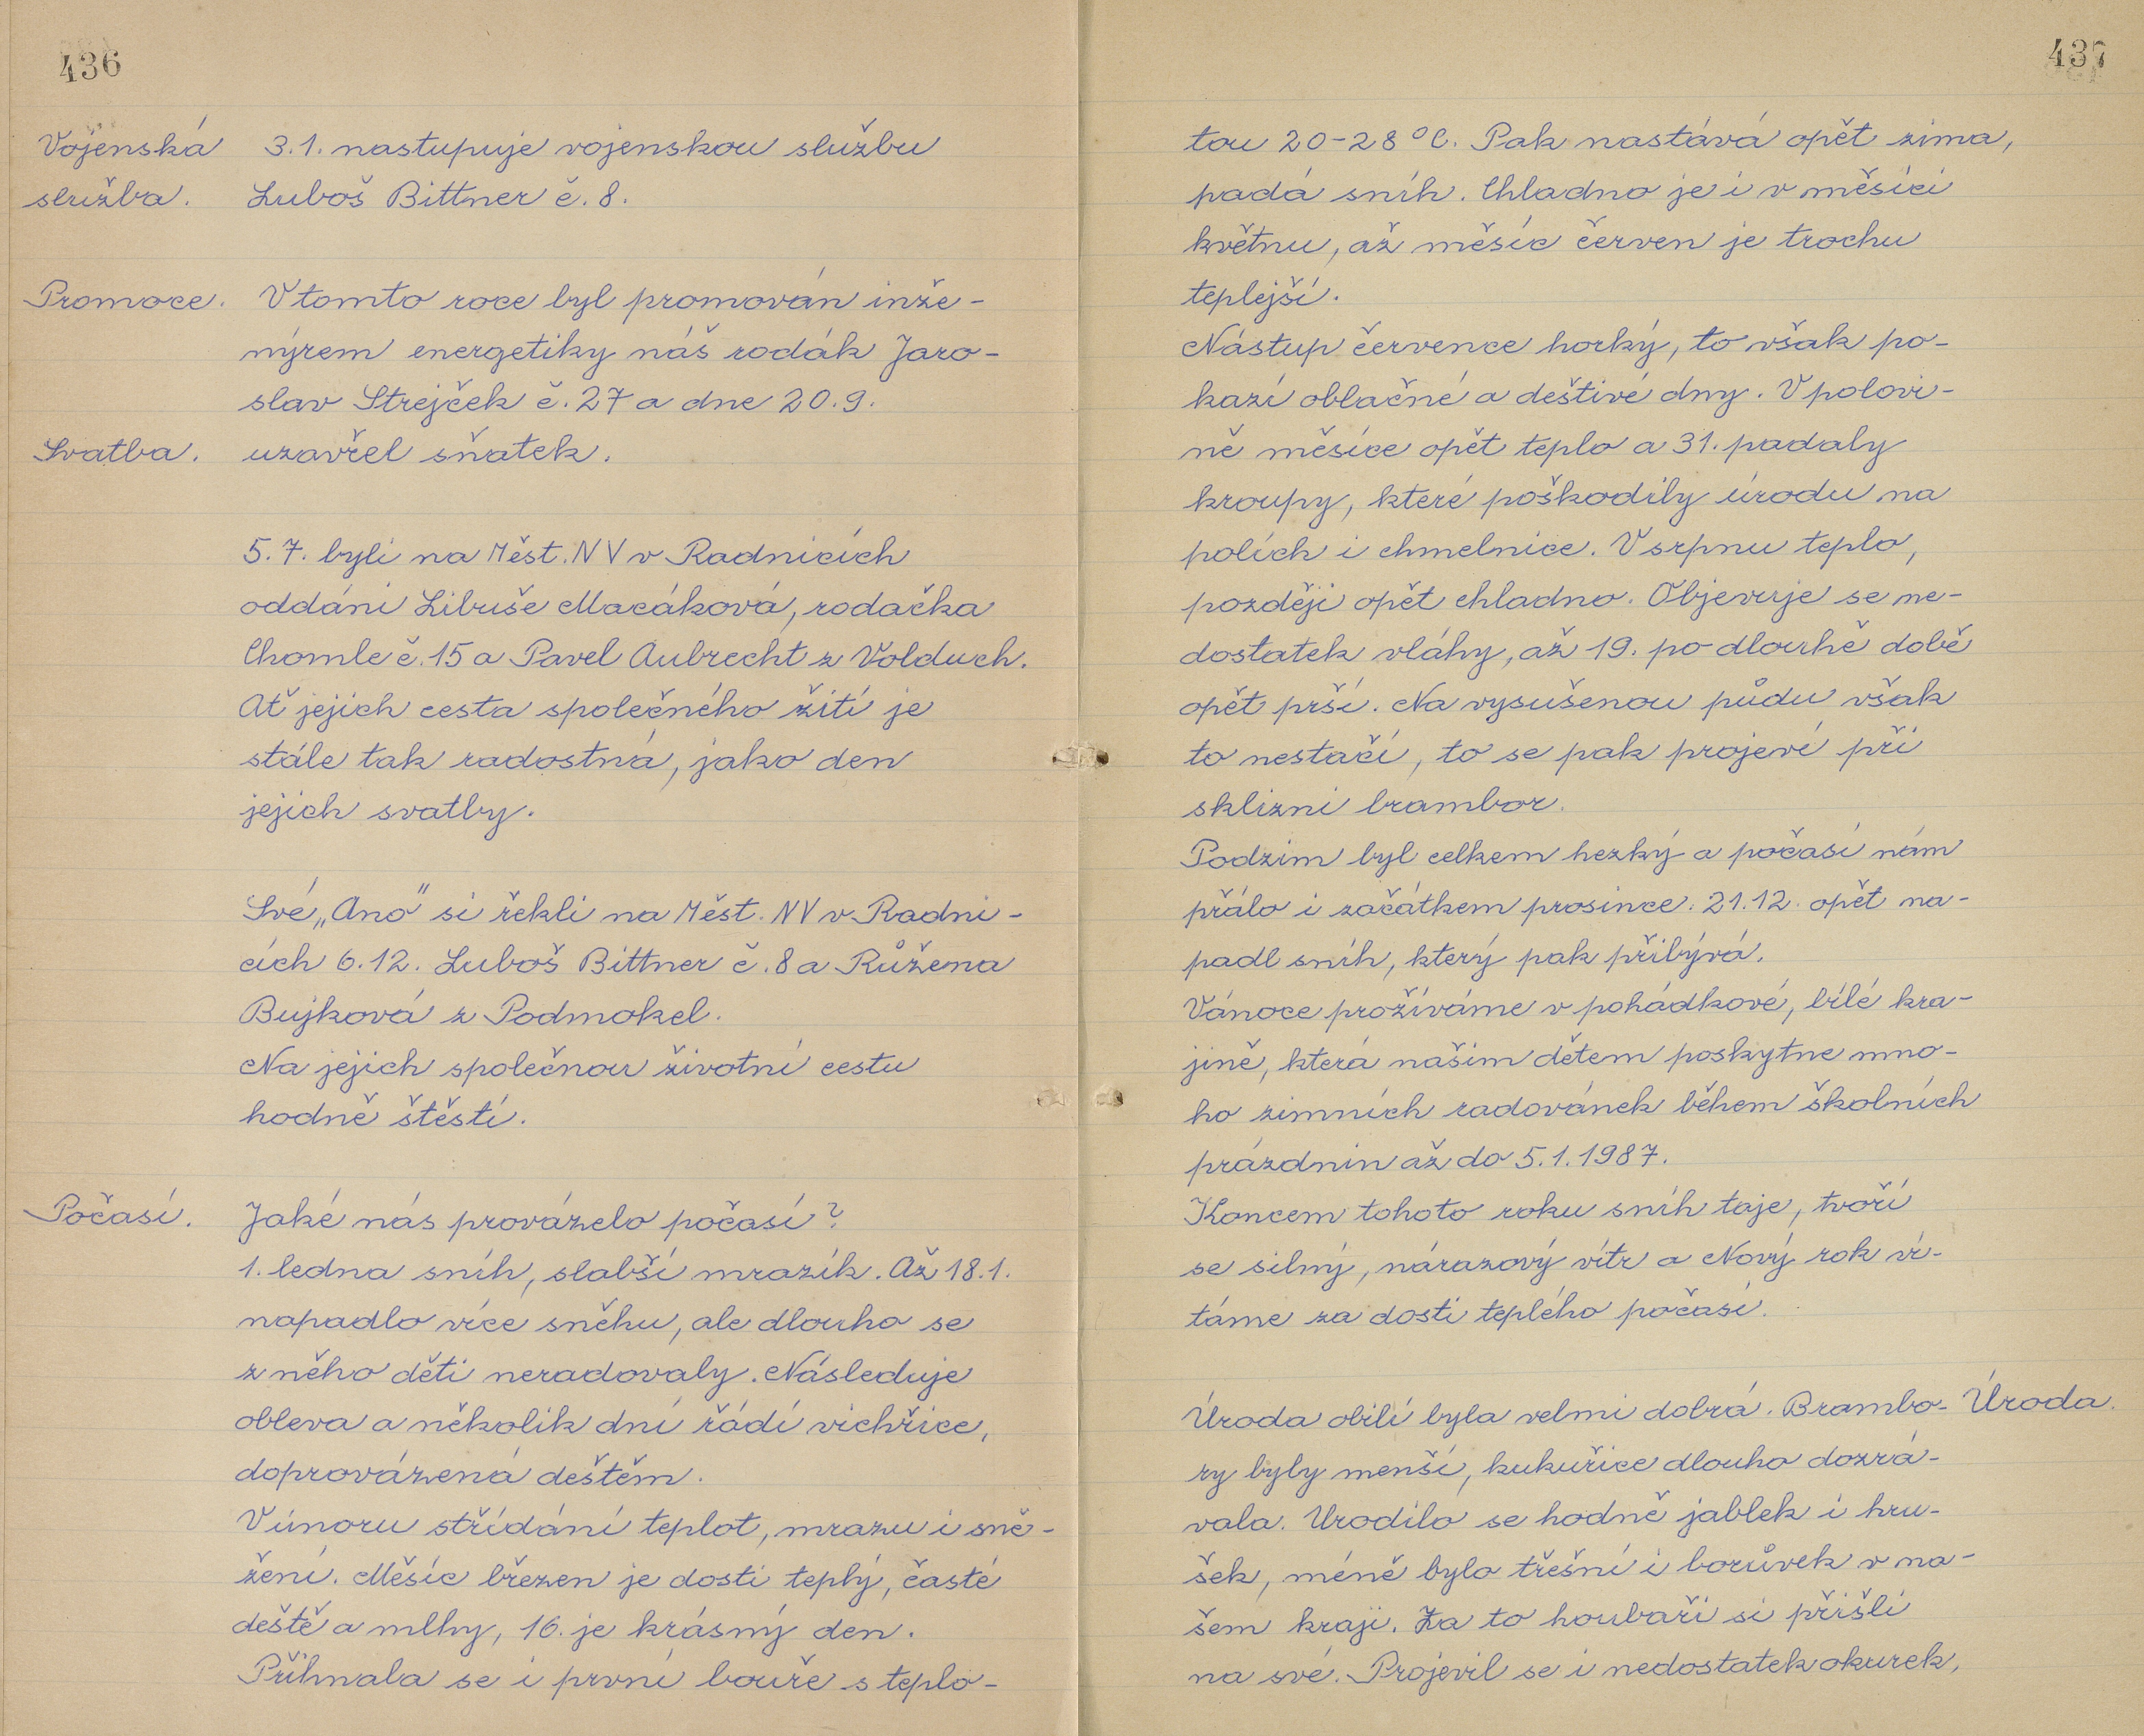 436
Vojenská 3.1. nastupuje vojenskou službu
služba. Luboš Bittner č. 8.
Promoce. V tomto roce byl promován inže-
nýrem energetiky náš rodák Jaro-
slav Strejček č. 27 a dne 20.9.
Svatba. uzavřel sňatek.
5.7. byli na Měst. NV v Radnicích
oddáni Libuše Macáková, rodačka
Chomle č. 15 a Pavel Aubrecht z Volduch.
Ať jejich cesta společného žití je
stále tak radostná, jako den
jejich svatby.
Své „Ano" si řekli na Měst. NV v Radni-
cích 6.12. Luboš Bittner č. 8 a Růžena
Bujková z Podmokel.
Na jejich společnou životní cestu
hodně štěstí.
Počasí. Jaké nás provázelo počasí?
1. ledna sníh, slabší mrazík. Až 18.1.
napadlo více sněhu, ale dlouho se
z něho děti neradovaly. Následuje
obleva a několik dní řádí vichřice,
doprovázená deštěm.
V únoru střídání teplot, mrazu i sně-
žení. Měsíc březen je dosti teplý, časté
deště a mlhy, 16. je krásný den.
Přihnala se i první bouře s teplo-
437
tou 20-28°C. Pak nastává opět zima,
padá sníh. Chladno je i v měsíci
květnu, až měsíc červen je trochu
teplejší.
Nástup července horký, to však po-
kazí oblačné a deštivé dny. V polovi-
ně měsíce opět teplo a 31. padaly
kroupy, které poškodily úrodu na
polích i chmelnice. V srpnu teplo,
později opět chladno. Objevuje se ne-
dostatek vláhy, až 19. po dlouhé době
opět prší. Na vysušenou půdu však
to nestačí, to se pak projeví při
sklizni brambor.
Podzim byl celkem hezký a počasí nám
přálo i začátkem prosince. 21.12. opět na-
padl sníh, který pak přibývá.
Vánoce prožíváme v pohádkové, bílé kra-
jině, která našim dětem poskytne mno-
ho zimních radovánek během školních
prázdnin až do 5.1.1987.
Koncem tohoto roku sníh taje, tvoří
se silný, nárazový vítr a Nový rok ví-
táme za dosti teplého počasí.
Úroda obilí byla velmi dobrá. Brambo- Úroda.
ry byly menší, kukuřice dlouho dozrá-
vala. Urodilo se hodně jablek i hru-
šek, méně bylo třešní i borůvek v na-
šem kraji. Za to houbaři si přišli
na své. Projevil se i nedostatek okurek,